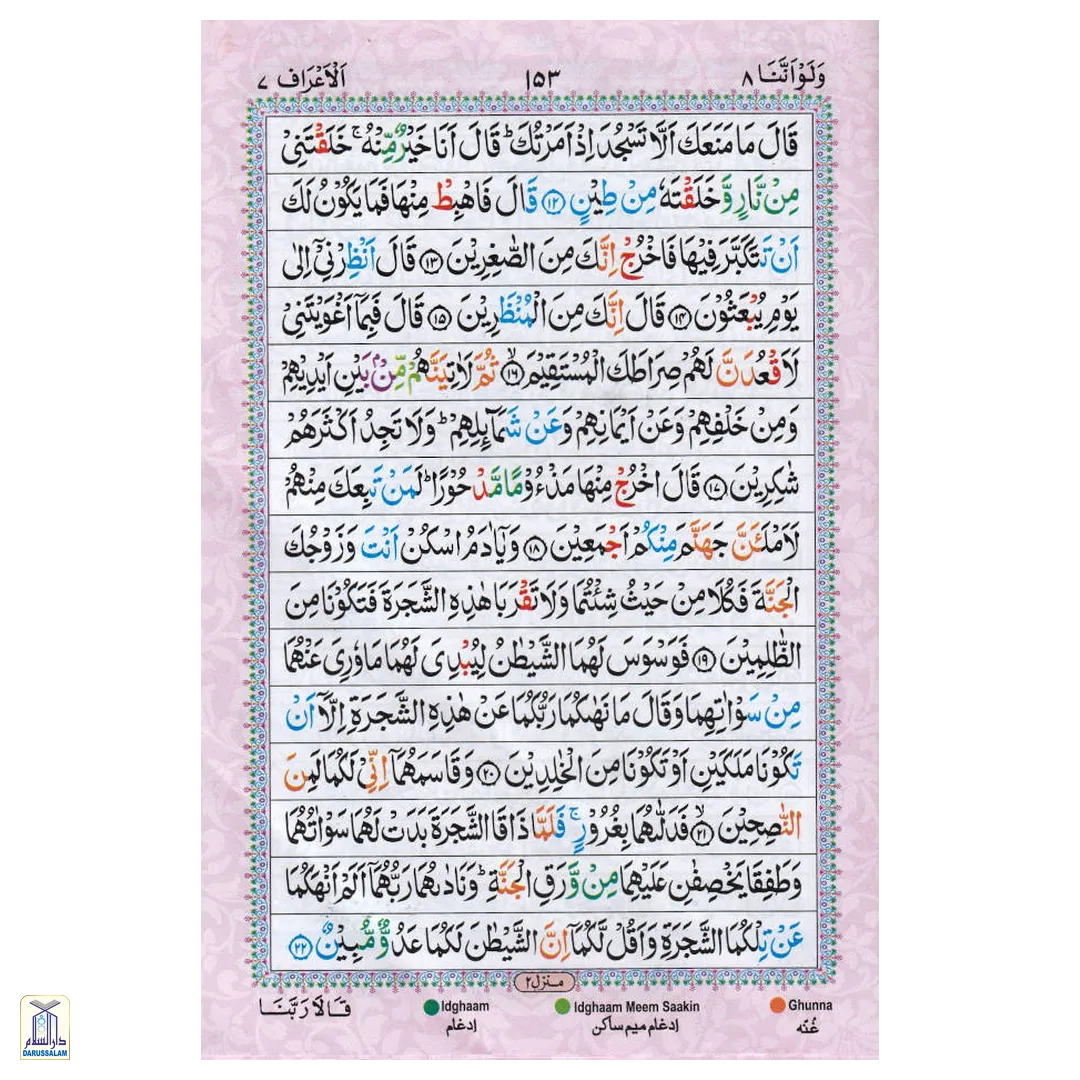 وَلَوْاَنَّنَا ٨
١٥٣
اَلْاَعْرَاف ٧
قَالَ مَا مَنَعَكَ اَلَّا تَسْجُدَ اِذْ اَمَرْتُكَ ؕ قَالَ اَنَا خَيْرٌ مِّنْهُ ۚ خَلَقْتَنِىْ
مِنْ نَّارٍ وَّ خَلَقْتَهٗ مِنْ طِيْنٍ ﴿۱۲﴾ قَالَ فَاهْبِطْ مِنْهَا فَمَا يَكُوْنُ لَكَ
اَنْ تَتَكَبَّرَ فِيْهَا فَاخْرُجْ اِنَّكَ مِنَ الصّٰغِرِيْنَ ﴿۱۳﴾ قَالَ اَنْظِرْنِىْۤ اِلٰى
يَوْمِ يُبْعَثُوْنَ ﴿۱۴﴾ قَالَ اِنَّكَ مِنَ الْمُنْظَرِيْنَ ﴿۱۵﴾ قَالَ فَبِمَاۤ اَغْوَيْتَنِىْ
لَاَقْعُدَنَّ لَهُمْ صِرَاطَكَ الْمُسْتَقِيْمَ ۙ﴿۱۶﴾ ثُمَّ لَاٰتِيَنَّهُمْ مِّنْۢ بَيْنِ اَيْدِيْهِمْ
وَمِنْ خَلْفِهِمْ وَعَنْ اَيْمَانِهِمْ وَعَنْ شَمَآئِلِهِمْ ؕ وَلَا تَجِدُ اَكْثَرَهُمْ
شٰكِرِيْنَ ﴿۱۷﴾ قَالَ اخْرُجْ مِنْهَا مَذْءُوْمًا مَّدْحُوْرًا ؕ لَمَنْ تَبِعَكَ مِنْهُمْ
لَاَمْلَـَٔنَّ جَهَنَّمَ مِنْكُمْ اَجْمَعِيْنَ ﴿۱۸﴾ وَيٰۤاٰدَمُ اسْكُنْ اَنْتَ وَزَوْجُكَ
الْجَنَّةَ فَكُلَا مِنْ حَيْثُ شِئْتُمَا وَلَا تَقْرَبَا هٰذِهِ الشَّجَرَةَ فَتَكُوْنَا مِنَ
الظّٰلِمِيْنَ ﴿۱۹﴾ فَوَسْوَسَ لَهُمَا الشَّيْطٰنُ لِيُبْدِىَ لَهُمَا مَا وٗرِىَ عَنْهُمَا
مِنْ سَوْاٰتِهِمَا وَقَالَ مَا نَهٰىكُمَا رَبُّكُمَا عَنْ هٰذِهِ الشَّجَرَةِ اِلَّاۤ اَنْ
تَكُوْنَا مَلَكَيْنِ اَوْ تَكُوْنَا مِنَ الْخٰلِدِيْنَ ﴿۲۰﴾ وَقَاسَمَهُمَاۤ اِنِّىْ لَكُمَا لَمِنَ
النّٰصِحِيْنَ ۙ﴿۲۱﴾ فَدَلّٰىهُمَا بِغُرُوْرٍ ۚ فَلَمَّا ذَاقَا الشَّجَرَةَ بَدَتْ لَهُمَا سَوْاٰتُهُمَا
وَطَفِقَا يَخْصِفٰنِ عَلَيْهِمَا مِنْ وَّرَقِ الْجَنَّةِ ؕ وَنَادٰىهُمَا رَبُّهُمَاۤ اَلَمْ اَنْهَكُمَا
عَنْ تِلْكُمَا الشَّجَرَةِ وَاَقُلْ لَّكُمَاۤ اِنَّ الشَّيْطٰنَ لَكُمَا عَدُوٌّ مُّبِيْنٌ ﴿۲۲﴾
منزل٢
قَالَا رَبَّنَا
Idghaam
ادغام
Idghaam Meem Saakin
ادغام میم ساکن
Ghunna
غُنّه
دارالسلام
DARUSSALAM